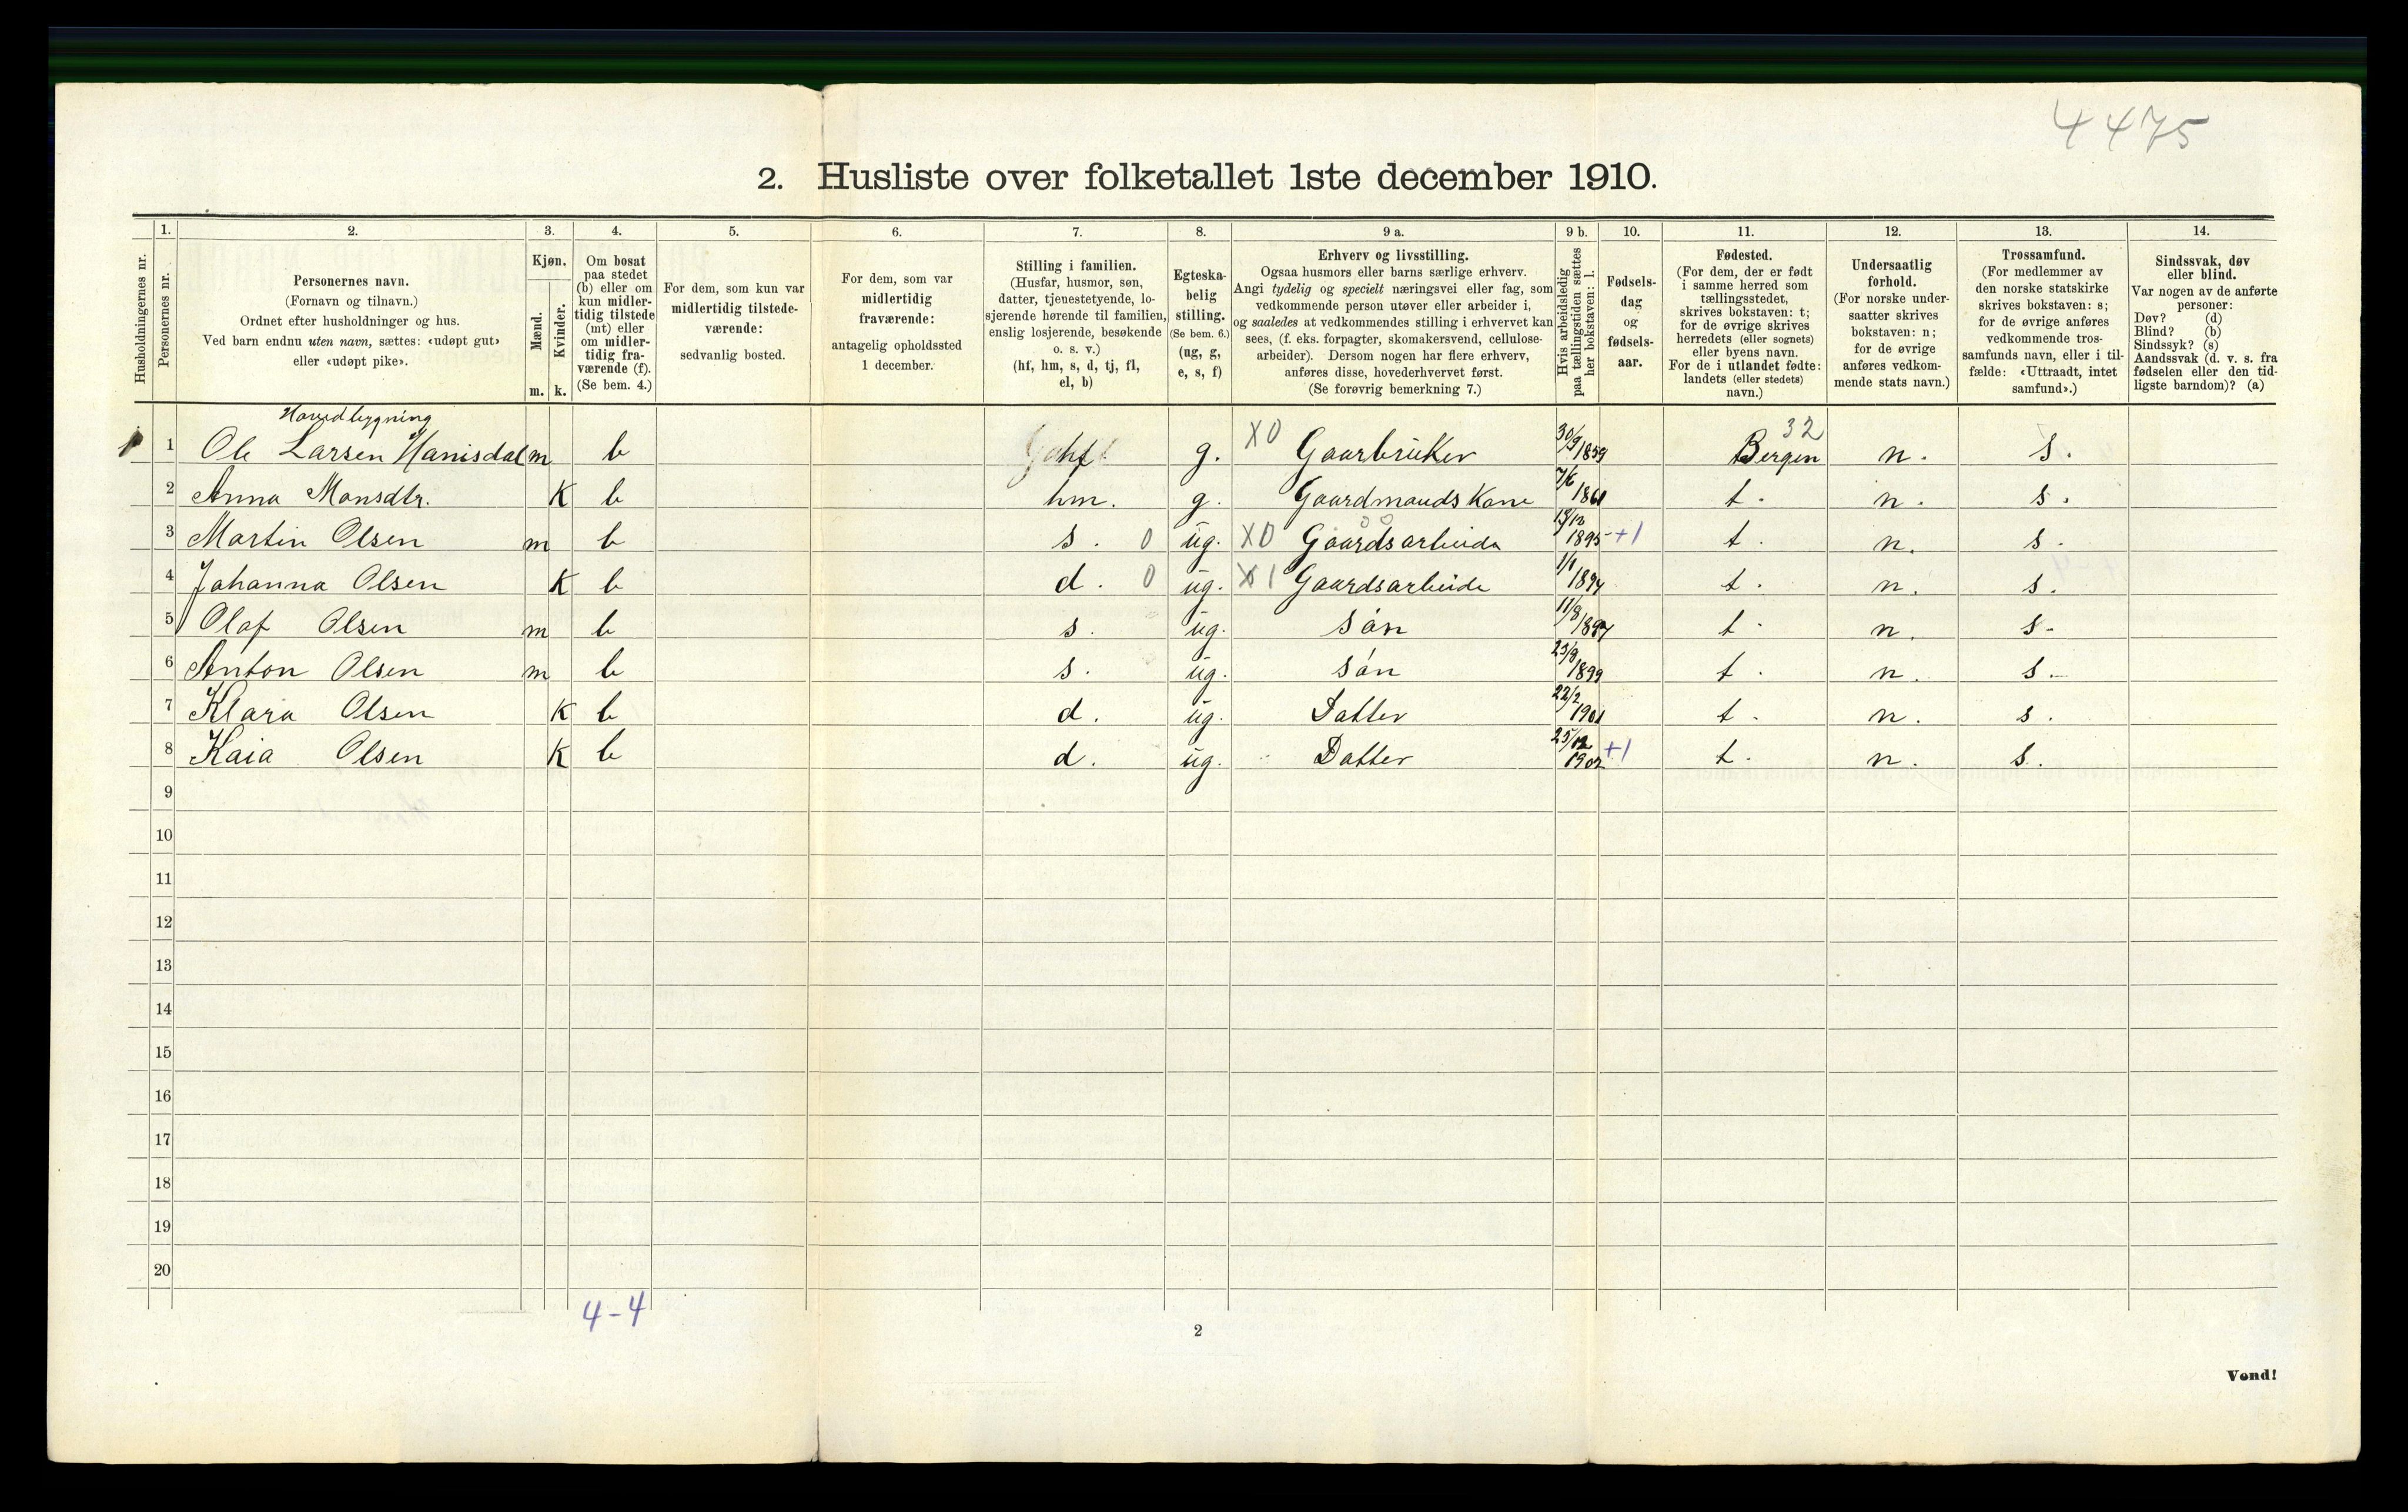 4475
2. Husliste over folketallet 1ste december 1910.
Husholdningernes nr.
1.
Personernes nr.
2.
Personernes navn.
(Fornavn og tilnavn.)
Ordnet efter husholdninger og hus.
Ved barn endnu uten navn, sættes: «udøpt gut»
eller «udøpt pike».
3.
Kjøn.
Mænd.
Kvinder.
m. k.
4.
Om bosat
paa stedet
(b) eller om
kun midler-
tidig tilstede
(mt) eller
om midler-
tidig fra-
værende (f).
(Se bem. 4.)
5.
For dem, som kun var
midlertidig tilstede-
værende:
sedvanlig bosted.
6.
For dem, som var
midlertidig
fraværende:
antagelig opholdssted
1 december.
7.
Stilling i familien.
(Husfar, husmor, søn,
datter, tjenestetyende, lo-
sjerende hørende til familien,
enslig losjerende, besøkende
o. s. v.)
(hf, hm, s, d, tj, fl,
el, b)
8.
Egteska-
belig
stilling.
(Se bem. 6.)
(ug, g,
e, s, f)
9 a.
Erhverv og livsstilling.
Ogsaa husmors eller barns særlige erhverv.
Angi tydelig og specielt næringsvei eller fag, som
vedkommende person utøver eller arbeider i,
og saaledes at vedkommendes stilling i erhvervet kan
sees, (f. eks. forpagter, skomakersvend, cellulose-
arbeider). Dersom nogen har flere erhverv,
anføres disse, hovederhvervet først.
(Se forøvrig bemerkning 7.)
9 b.
Hvis arbeidsledig
paa tællingstiden sættes
her bokstaven: l.
10.
Fødsels-
dag
og
fødsels-
aar.
11.
Fødested.
(For dem, der er født
i samme herred som
tællingsstedet,
skrives bokstaven: t;
for de øvrige skrives
herredets (eller sognets)
eller byens navn.
For de i utlandet fødte:
landets (eller stedets)
navn.)
12.
Undersaatlig
forhold.
(For norske under-
saatter skrives
bokstaven: n;
for de øvrige
anføres vedkom-
mende stats navn.)
13.
Trossamfund.
(For medlemmer av
den norske statskirke
skrives bokstaven: s;
for de øvrige anføres
vedkommende tros-
samfunds navn, eller i til-
fælde: «Uttraadt, intet
samfund».)
14.
Sindssvak, døv
eller blind.
Var nogen av de anførte
personer:
Døv? (d)
Blind? (b)
Sindssyk? (s)
Aandssvak (d. v. s. fra
fødselen eller den tid-
ligste barndom)? (a)
Hovedbygning
1 Ole Larsen Hanisdal m b hf g. X0 Gaarbrüker 30/9 1859 Bergen 32 n. s.
2 Anna Monsdtr. K b hm. g. Gaardmands Kone 7/6 1861 t. n. s.
3 Martin Olsen m b s. 0 üg. X0 Gaardsarbeide 18/12 1895 +1 t. n. s.
4 Johanna Olsen K b d. 0 üg. X1 Gaardsarbeide 1/1 1894 t. n. s.
5 Olaf Olsen m b s. üg. Són 11/8 1897 t. n. s.
6 Anton Olsen m b s. üg. Són 23/8 1899 t. n. s.
7 Klara Olsen K b d. üg. Datter 22/2 1901 t. n. s.
8 Kaia Olsen K b d. üg. Datter 25/12 1902 +1 t. n. s.
9
10
11
12
13
14
15
16
17
18
19
20
4-4
2
Vend!